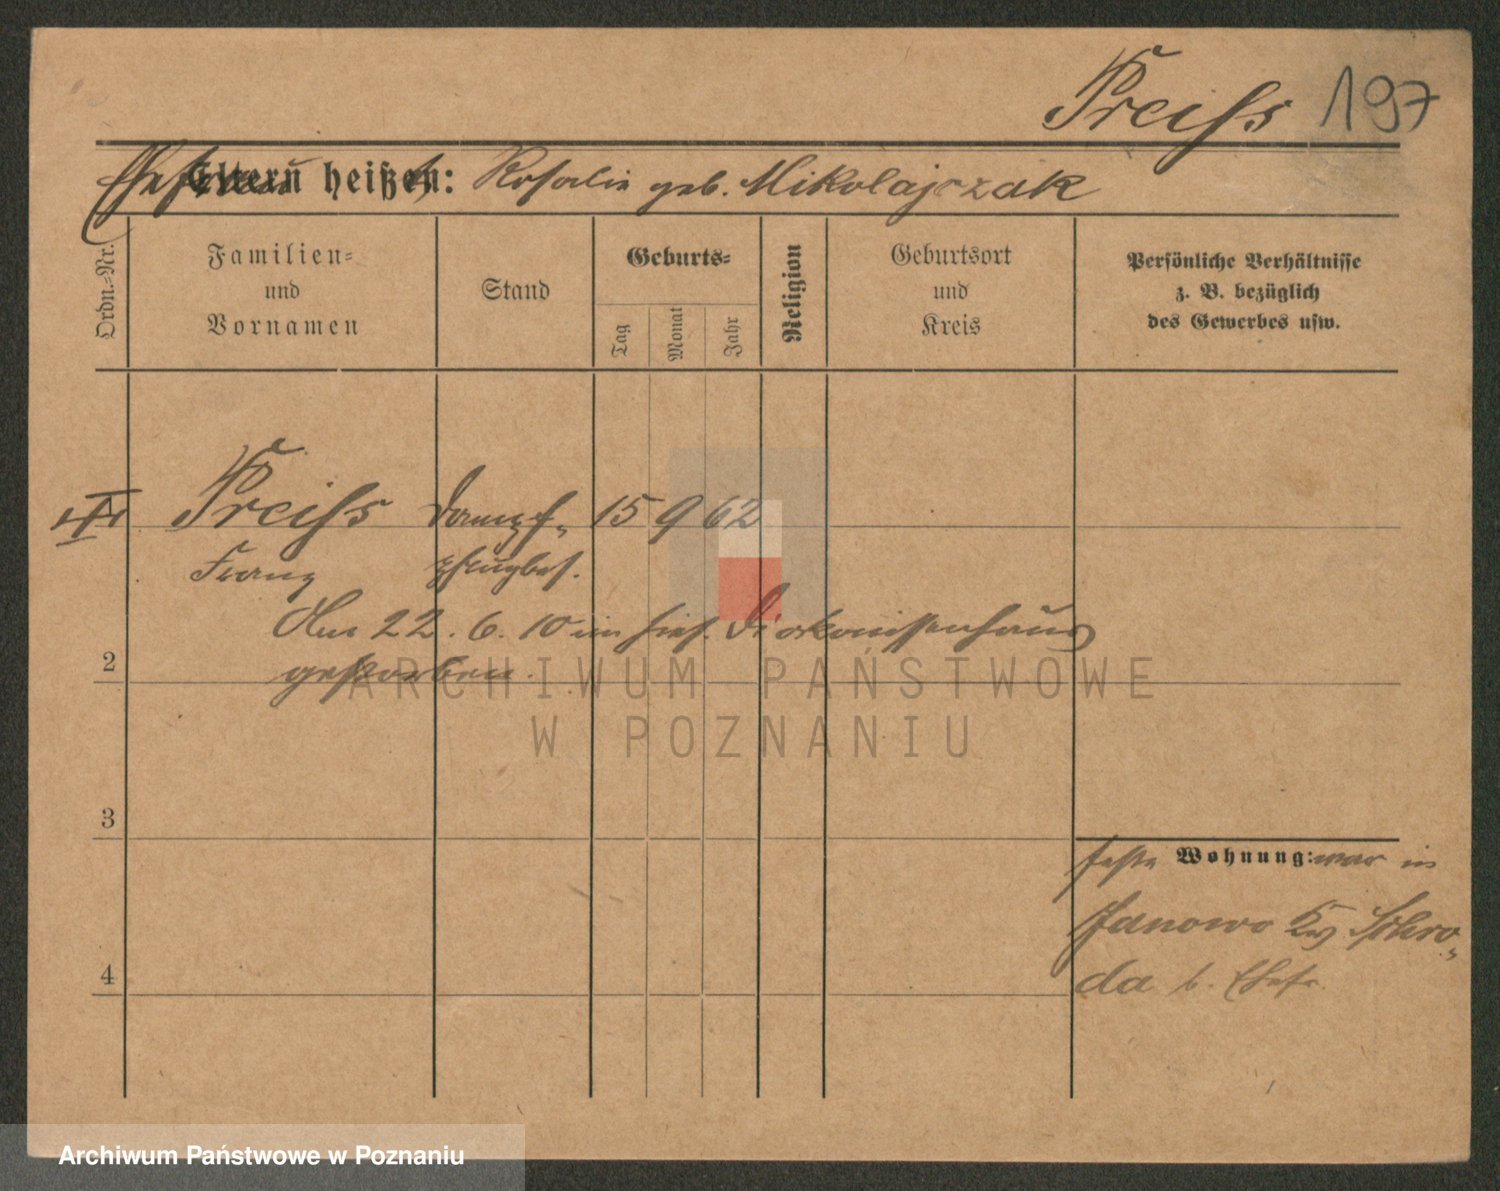 Preiss 197
Ehefrau heißt: Rosalie geb. Mikolajczak
Ordn.-Nr.
Familien-
und
Vornamen
Stand
Geburts-
Tag
Monat
Jahr
Religion
Geburtsort
und
Kreis
Persönliche Verhältnisse
z. B. bezüglich
des Gewerbes usw.
Preiss Dampf- 15 9 62
Franz pflugbes.
Am 22. 6. 10 im hies. Diakonissenhaus
2 gestorben.
ARCHIWUM PAŃSTWOWE
W POZNANIU
3
feste Wohnung: war in
Janowo Kr. Schro-
da b. Ehefr.
4
Archiwum Państwowe w Poznaniu